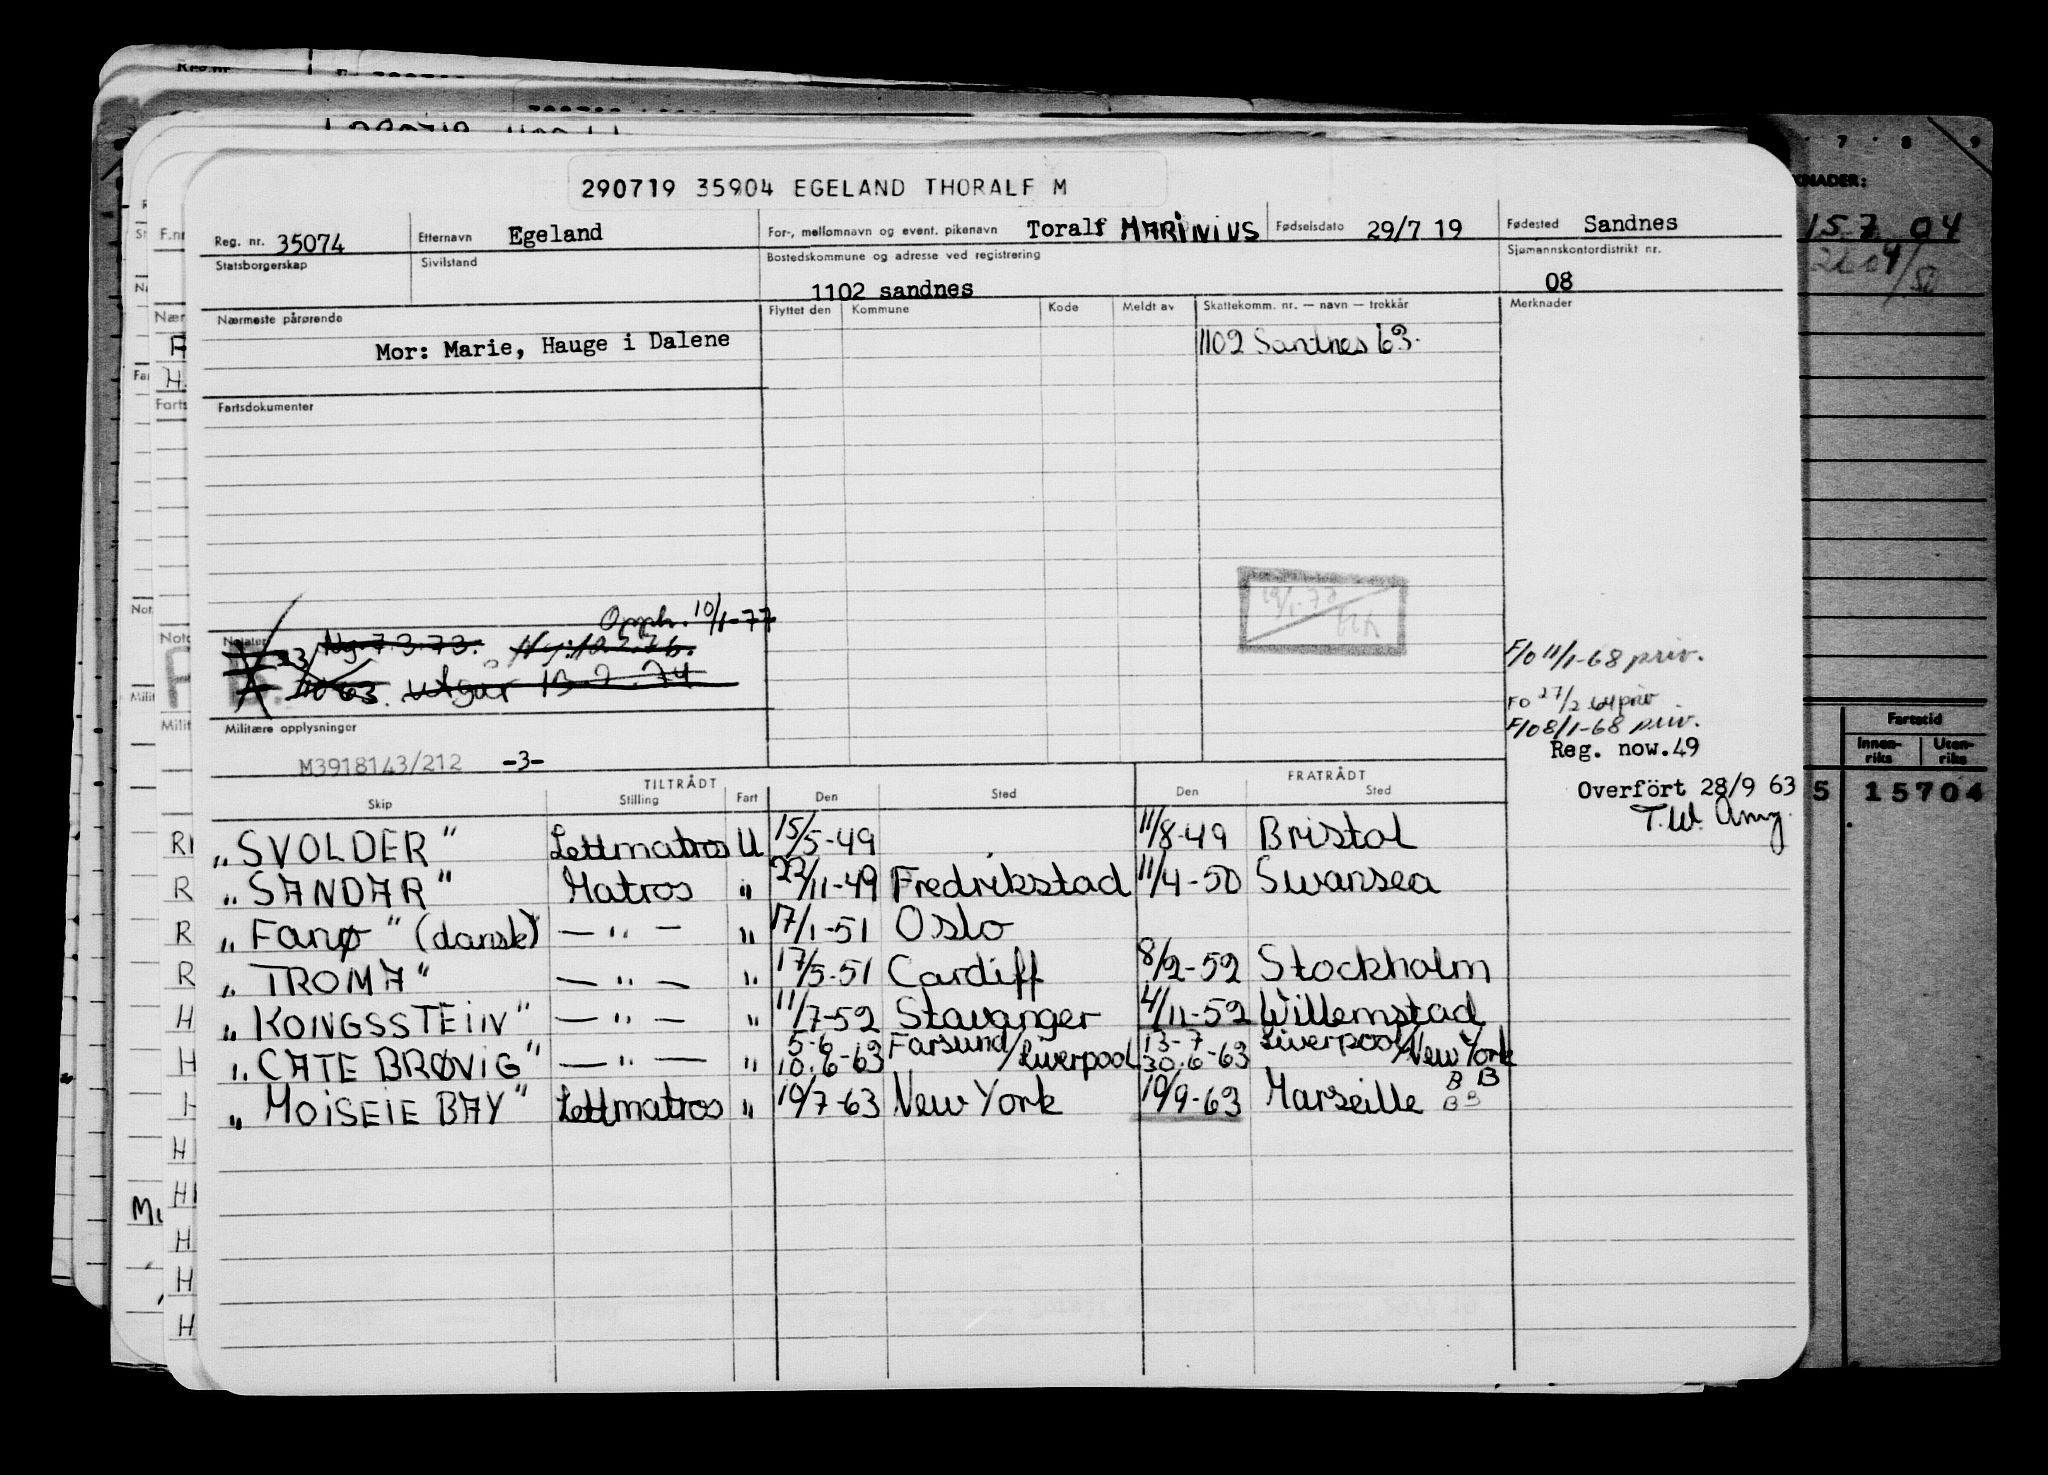 290719 35904 EGELAND THORALF M
Reg. nr. 35074 Etternavn Egeland For-, mellomnavn og event. pikenavn Toralf MARiNiUS Fødselsdato 29/7 19 Fødested Sandnes
Statsborgerskap Sivilstand Bostedskommune og adresse ved registrering 1102 sandnes Sjømannskontordistrikt nr. 08
Nærmeste pårørende Flyttet den Kommune Kode Meldt av Skattekomm. nr. — navn — trekkår Merknader
Mor: Marie, Hauge i Dalene 1102 Sandnes 63.
Fartsdokumenter
Opph. 10/1-77
Notater Ny 7.3.73. Ny: 10.2.76.
63. Utgår 13.2.74
F/O 11/1-68 priv.
FO 27/2 64 priv
F/O 8/1-68 priv.
Militære opplysninger
Reg. now.49
M3918143/212 -3-
Overført 28/9 63
TILTRÅDT FRATRÅDT
Skip Stilling Fart Den Sted Den Sted
"SVOLDER" Lettmatros U 15/5-49 11/8-49 Bristol
"SANDAR" Matros " 22/11-49 Fredrikstad 11/4-50 Swansea
"Fanø" (dansk) — " — " 17/1-51 Oslo
"TROMA" — " — " 17/5-51 Cardiff 8/2-52 Stockholm
"KONGSSTEiN" — " — " 11/7-52 Stavanger 4/11-52 Willemstad
"CATE BRØViG" — " — " 5-6 10.6-63 Farsund/Liverpool 13-7 30.6-63 Liverpool/New York
"MOiSEiE BAY" Lettmatros " 19/7-63 New York 19/9-63 Marseille B B
B B
KNADER:
15.7.04
Fartstid
Innen-riks Uten-riks
5 15704